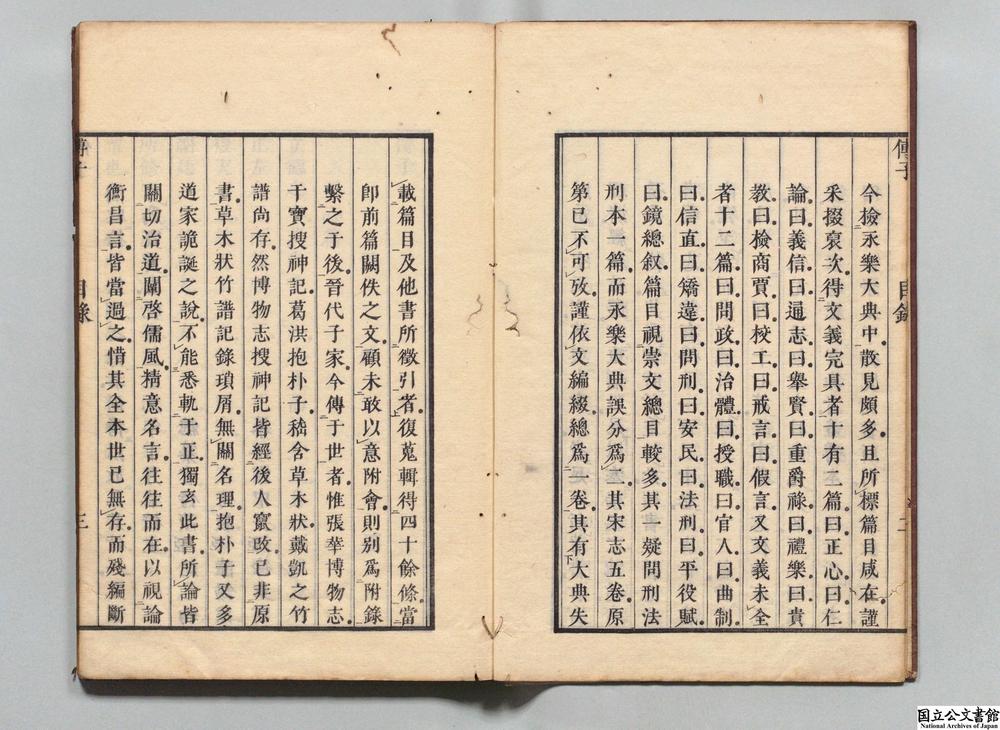 今檢永樂大典中散見頗多且所標篇目咸在謹
采掇裒次得文義完具者十有二篇曰正心曰仁
論曰義信曰通志曰舉賢曰重爵祿曰禮樂曰貴
教曰檢商賈曰校工曰戒言曰假言又文義未全
者十二篇曰問政曰治體曰授職曰官人曰曲制
曰信直曰矯違曰問刑曰安民曰法刑曰平役賦
曰鏡總叙篇目視崇文總目較多其一疑問刑法
刑本一篇而永樂大典誤分爲二其宋志五卷原
第已不可攷謹依文編綴總爲一卷其有大典失
載篇目及他書所徵引者復蒐輯得四十餘條當
卽前篇闕佚之文顧未敢以意附會則别爲附錄
繫之于後晉代子家今傳于世者惟張華博物志
干寶搜神記葛洪抱朴子嵇含草木狀戴凱之竹
譜尚存然博物志搜神記皆經後人竄改已非原
書草木狀竹譜記錄瑣屑無關名理抱朴子又多
道家詭誕之說不能悉軌于正獨玄此書所論皆
關切治道闡啓儒風精意名言往往而在以視論
衡昌言皆當過之惜其全本世已無存而殘編斷
傅子
目錄
二
傅子
目錄
三
国立公文書館
National Archives of Japan